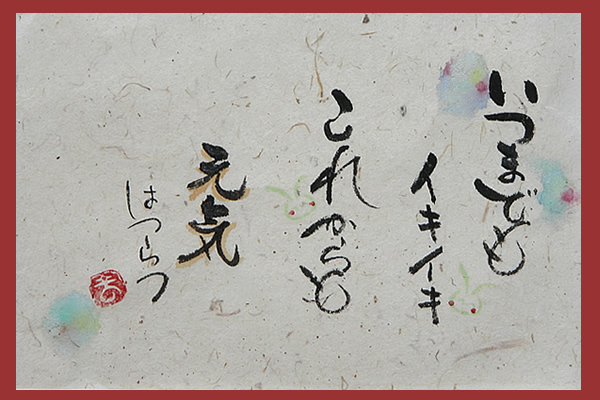 いつまでも
イキイキ
これからも
元気
はつらつ